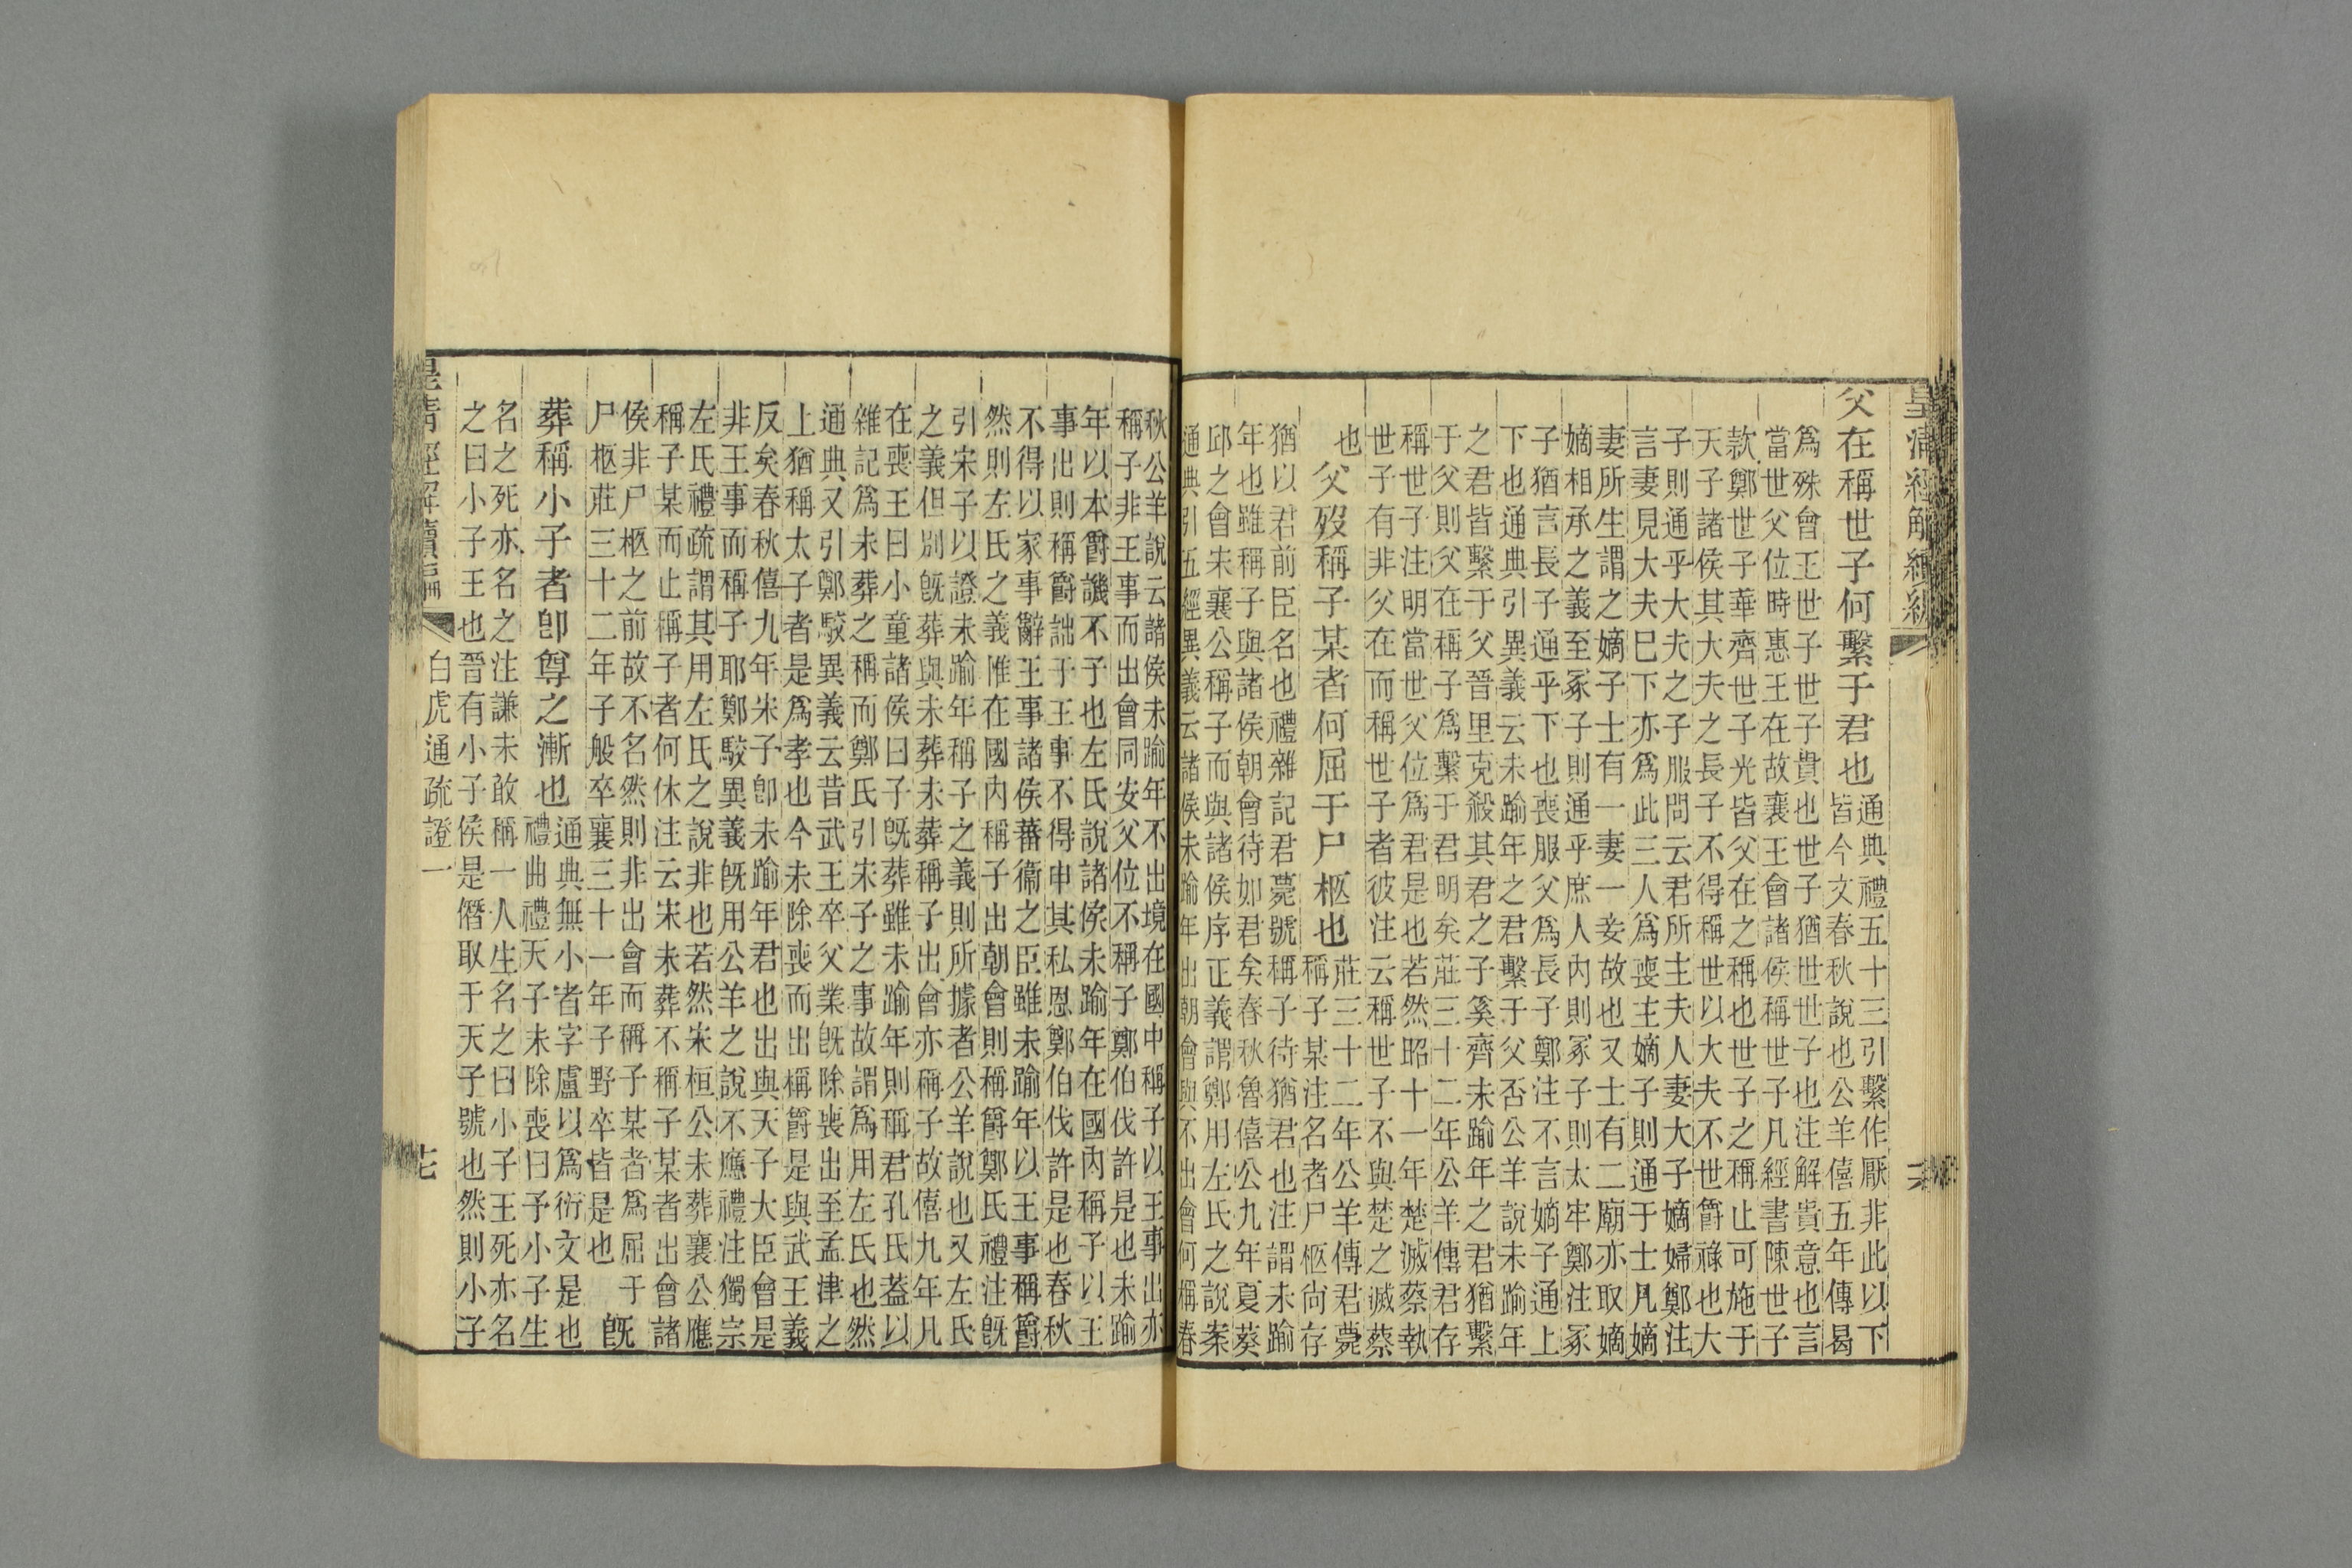 皇清經解續編
父在稱世子何繫于君也
通典禮五十三引繫作厭非此以下
皆今文春秋說也公羊僖五年傳曷
爲殊會王世子世子貴也世子猶世世子也注解貴意也言
當世父位時惠王在故襄王會諸侯稱世子凡經書陳世子
款鄭世子華齊世子光皆父在之稱也世子之稱止可施于
天子諸侯其大夫之長子不得稱世以大夫不世爵祿也大
子則通乎大夫之子服問云君所主夫人妻大子嫡婦鄭注
言妻見大夫巳下亦爲此三人爲喪主嫡子則通于士凡嫡
妻所生謂之嫡子士有一妻一妾故也又士有二廟亦取嫡
嫡相承之義至冢子則通乎庶人內則冢子則太牢鄭注冢
子猶言長子通乎下也喪服父爲長子鄭注不言嫡子通上
下也通典引異義云未踰年之君繫于父否公羊說未踰年
之君皆繫于父晉里克殺其君之子奚齊未踰年之君猶繫
于父則父在稱子爲繫于君明矣莊三十二年公羊傳君存
稱世子注明當世父位爲君是也若然昭十一年楚滅蔡執
世子有非父在而稱世子者彼注云稱世子不與楚之滅蔡
也
父歿稱子某者何屈于尸柩也
莊三十二年公羊傳君薨
稱子某注名者尸柩尚存
猶以君前臣名也禮雜記君薨號稱子待猶君也注謂未踰
年也雖稱子與諸侯朝會待如君矣春秋魯僖公九年夏葵
邱之會未襄公稱子而與諸侯序正義謂鄭用左氏之說案
通典引五經異義云諸侯未踰年出朝會與不出會何稱春
秋公羊說云諸侯未踰年不出境在國中稱子以王事出亦
稱子非王事而出會同安父位不稱子鄭伯伐許是也未踰
年以本爵譏不子也左氏說諸侯未踰年在國內稱子以王
事出則稱爵詘于王事不得申其私恩鄭伯伐許是也春秋
不得以家事辭王事諸侯蕃衞之臣雖未踰年以王事稱爵
然則左氏之義惟在國內稱子出朝會則稱爵鄭氏禮注旣
引宋子以證未踰年稱子之義則所據者公羊說也又左氏
之義但別旣葬與未葬未葬稱子出會亦稱子故僖九年凡
在喪王曰小童諸侯曰子旣葬雖未踰年則稱君孔氏葢以
雜記爲未葬之稱而鄭氏引宋子之事故謂爲用左氏也然
通典又引鄭駁異義云昔武王卒父業旣除喪出至孟津之
上猶稱太子者是爲孝也今未除喪而出稱爵是與武王義
反矣春秋僖九年宋子卽未踰年君也出與天子大臣會是
非王事而稱子耶鄭駁異義旣用公羊之說不應禮注獨宗
左氏禮疏謂其用左氏之說非也若然宋桓公未葬襄公應
稱子某而止稱子者何休注云宋未葬不稱子某者出會諸
侯非尸柩之前故不名然則非出會而稱子某者爲屈于
尸柩莊三十二年子般卒襄三十一年子野卒皆是也
旣
葬稱小子者卽尊之漸也
通典無小者字盧以爲衍文是也
禮曲禮天子未除喪曰予小子生
名之死亦名之注謙未敢稱一人生名之曰小子王死亦名
之曰小子王也晉有小子侯是僭取于天子號也然則小子
皇清經解續編
白虎通疏證一